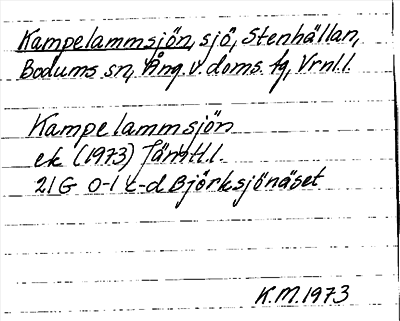 Kampelammsjön, sjö, Stenhällan,
Bodums sn, Ång. v. doms. tg, Vrnl. l.
Kampelammsjön
ek (1973) Jämtl. l.
21G 0-1 c-d Björksjönäset
K.M. 1973